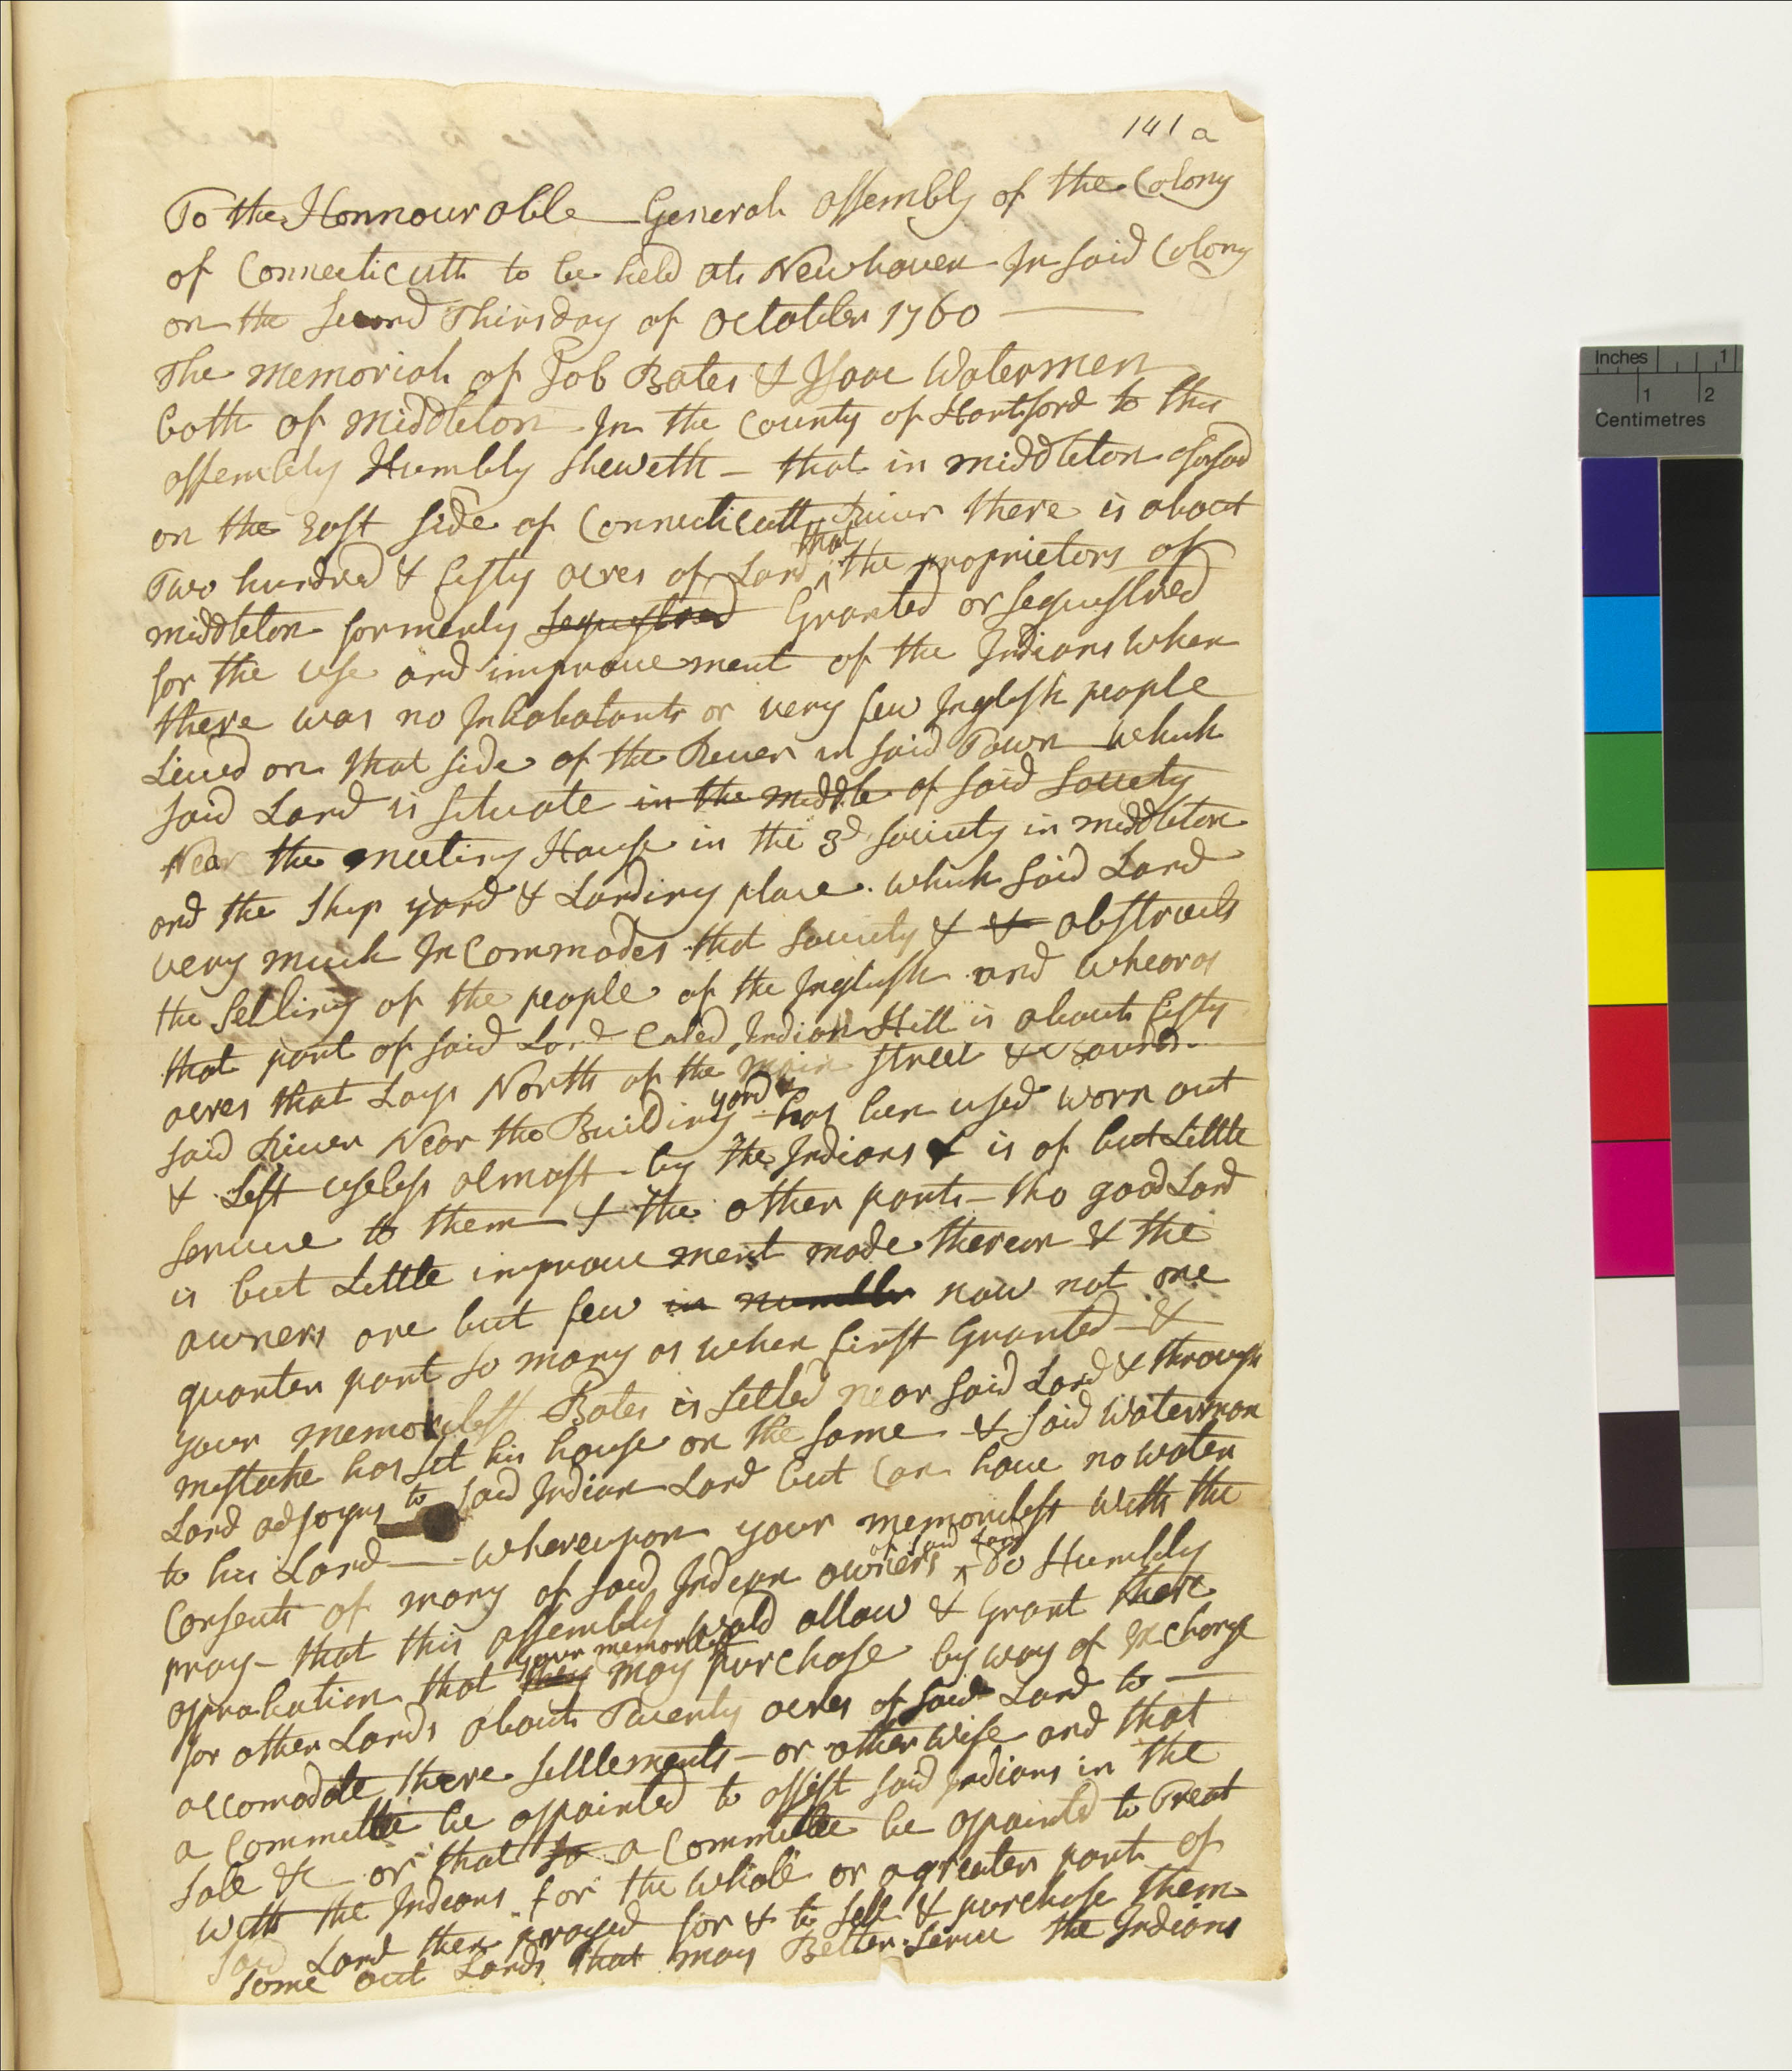 141 a
To the Honnourable General assembly of the Colony
of Connecticutt to be held att Newhaven In said Colony
on the Second Thirsday of octobber 1760
The memorial of Job Bates & Isaac Watermen
both of middleton In the County of Hartford to this
assembly Humbly sheweth - that in middleton aforsad
on the East side of Connecticutt River there is about
Two hundred & fifty acres of Land that the proprietors of
middleton formerly sequestred Granted or sequestred
for the use and improvement of the Indians when
there was no Inhabatants or very few Inglesh people
Lived on that side of the River in said Town which
said Land is situate in the middle of said Society
Near the meeting House in the 3d society in middleton
and the ship yard & Landing place. which said Land
very much In Commodes that society & & obstructs
the setling of the people of the Inglush and whearas
that part of said Land Caled Indian Hill is about fifty
acres that Lays North of the main street &
said River Near the Building yard has ben used worn out
& Left useless almost by the Indians & is of but Little
service to them & the other parts - tho good Land
is but Little improvement made thereon & the
owners are but few in number now not one
quarter part so many as when first Granted &
your memorilest Bates is setled near said Land & through
mestake has set his house on the same & said Waterman
Land adjoyns to said Indian Land but Can have no water
to his Land — whereupon your memorilest with the
Consent of many of said Indian owners of said Land Do Humbly
pray - that this assembly would allow & Grant there
approbation that they your memorilest may purchase by way of Exchange
for other Lands about Twenty acres of said Land to
accomodate there settlements - or other wise and that
a Committee be appointed to assist said Indians in the
sale &c or that so a Committee be appointed to Treat
with the Indians for the whole or a greater part of
said Land then prayed for & to sell & purchase them
some out Lands that may Better serve the Indians